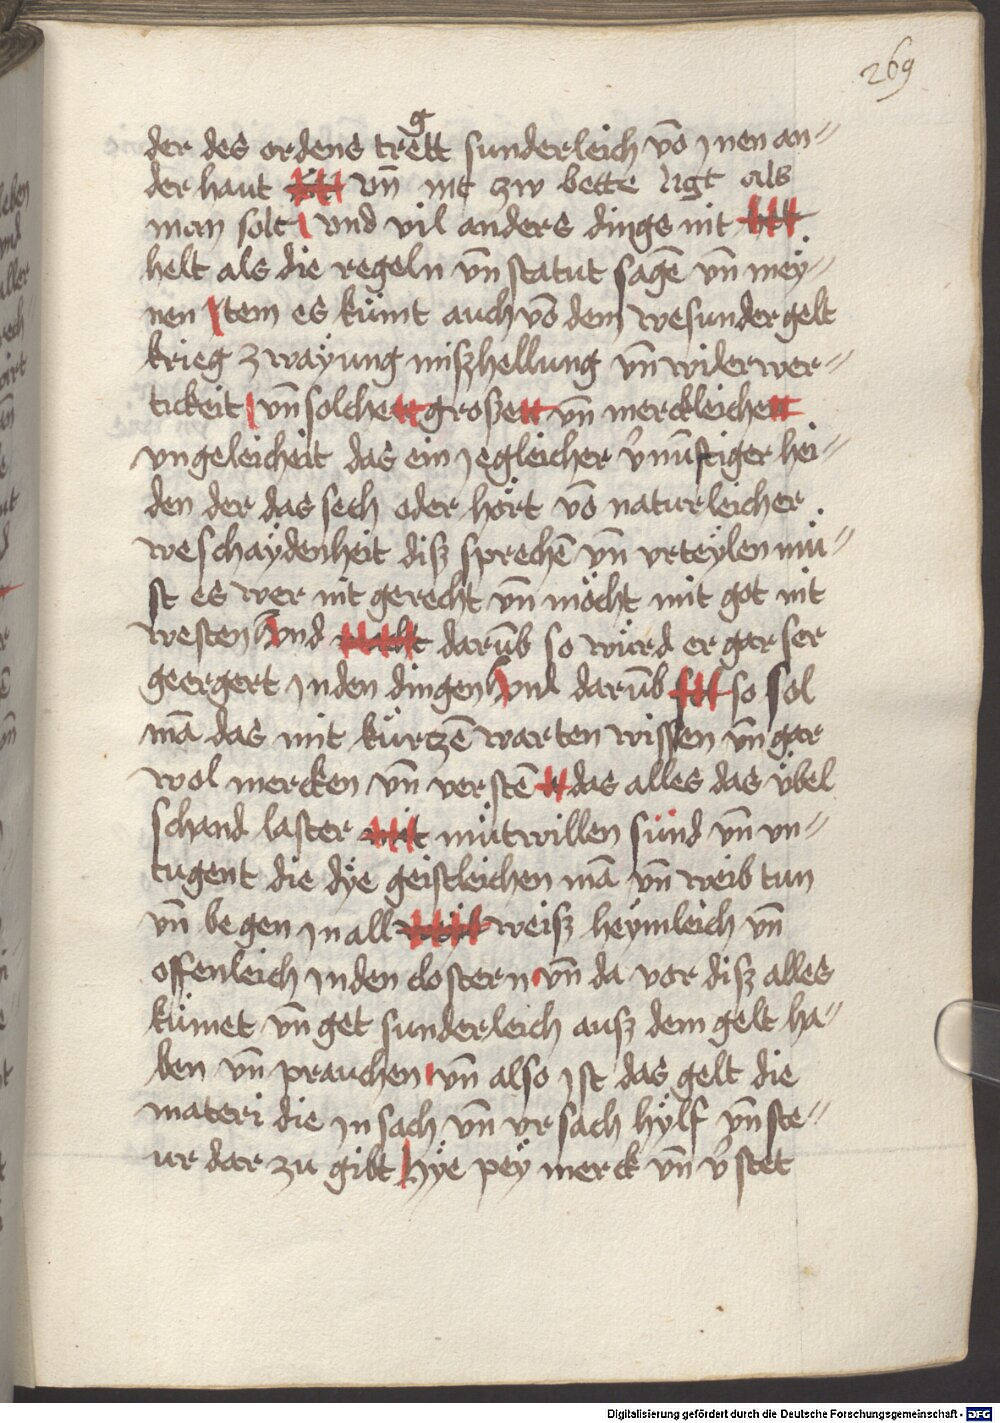 269
der des ordens tregtt sunderleich vō jnen an-
der haut vn̄ nit zw bette ligt als
man solt vnd vil anders dings nit
helt als die regeln vn̄ statut sagē vn̄ mey-
nen Item es kümt auch vō dem wesunder gelt
krieg zwayung miszhellung vn̄ widerwer-
tickeit vn̄ solche grosze vn̄ merckleiche
vngeleicheit das ein jegleicher v̄nūftiger hei-
den der das sech oder hört vō naturleicher
weschaydenheit disz sprechē vn̄ vrteylen mü-
st es wer nit gerecht vn̄ möcht mit got nit
westen vnd darūb so würd er gar ser
geergert jn den dingen vnd darūb so sol
mā das mit kürtzē warten wissen vn̄ gar
wol mercken vn̄ verstē das alles das übel
schand laster mütwillen sünd vn̄ vn-
tugent die dye geistleichen mā vn̄ weib tun
vn̄ begen jn all weisz heymleich vn̄
offenleich jn den clostern vn̄ da vor disz alles
kümet vn̄ get sunderleich ausz dem gelt ha-
ben vn̄ prauchen vn̄ also jst das gelt die
materi die jn sach vn̄ vrsach hylf vn̄ ste-
ur dar zu gibt hye pey merck vn̄ v̄stet
Digitalisierung gefördert durch die Deutsche Forschungsgemeinschaft - DFG